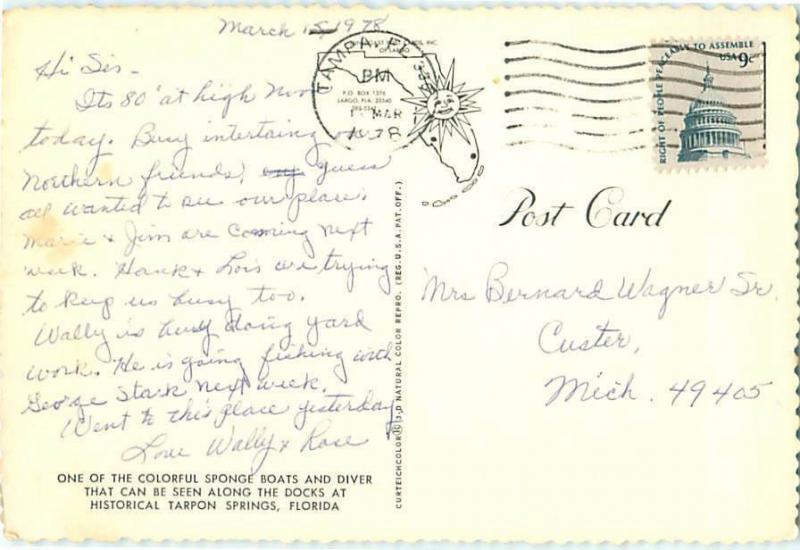 March 15, 1978
Hi Sis -
Its 80° at high Noon
today. Busy intertaing our
Northern friends, guess
all wanted to see our place.
Marie & Jim are coming next
week. Hank & Lois are trying
to keep us busy too.
Wally is busy doing yard
work. He is going fishing with
George Stark next week.
Went to this place yesterday
Love Wally & Rose
ONE OF THE COLORFUL SPONGE BOATS AND DIVER
THAT CAN BE SEEN ALONG THE DOCKS AT
HISTORICAL TARPON SPRINGS, FLORIDA
CURTEICHCOLOR® 3-D NATURAL COLOR REPRO. (REG. U.S.A. PAT. OFF.)
INC.
OF LARGO
P.O. BOX 1376
LARGO, FLA. 33540
TAMPA, FL
PM
MAR
1978
RIGHT OF PEOPLE PEACEABLY TO ASSEMBLE
USA 9c
Post Card
Mrs Bernard Wagner Sr.
Custer,
Mich. 49405